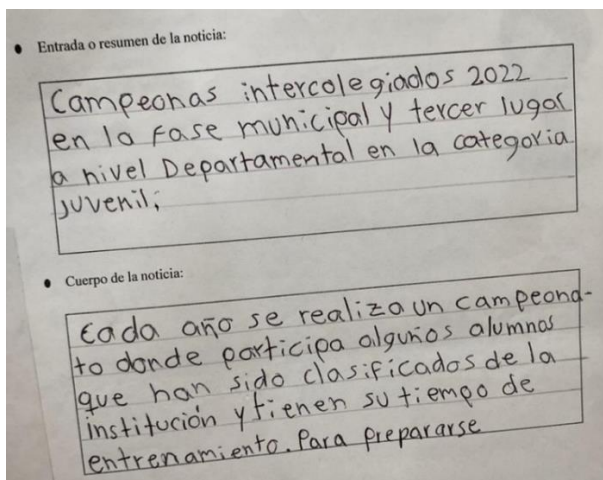 Entrada o resumen de la noticia:
Campeonas intercolegiados 2022
en la fase municipal y tercer lugar
a nivel Departamental en la categoria
juvenil;
Cuerpo de la noticia:
cada año se realiza un campeona-
to donde participa algunos alumnos
que han sido clasificados de la
institución y tienen su tiempo de
entrenamiento. Para prepararse